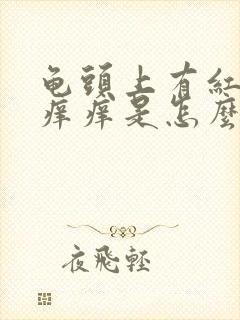 龟頭上有紅
痒痒是怎麼
夜飛輕